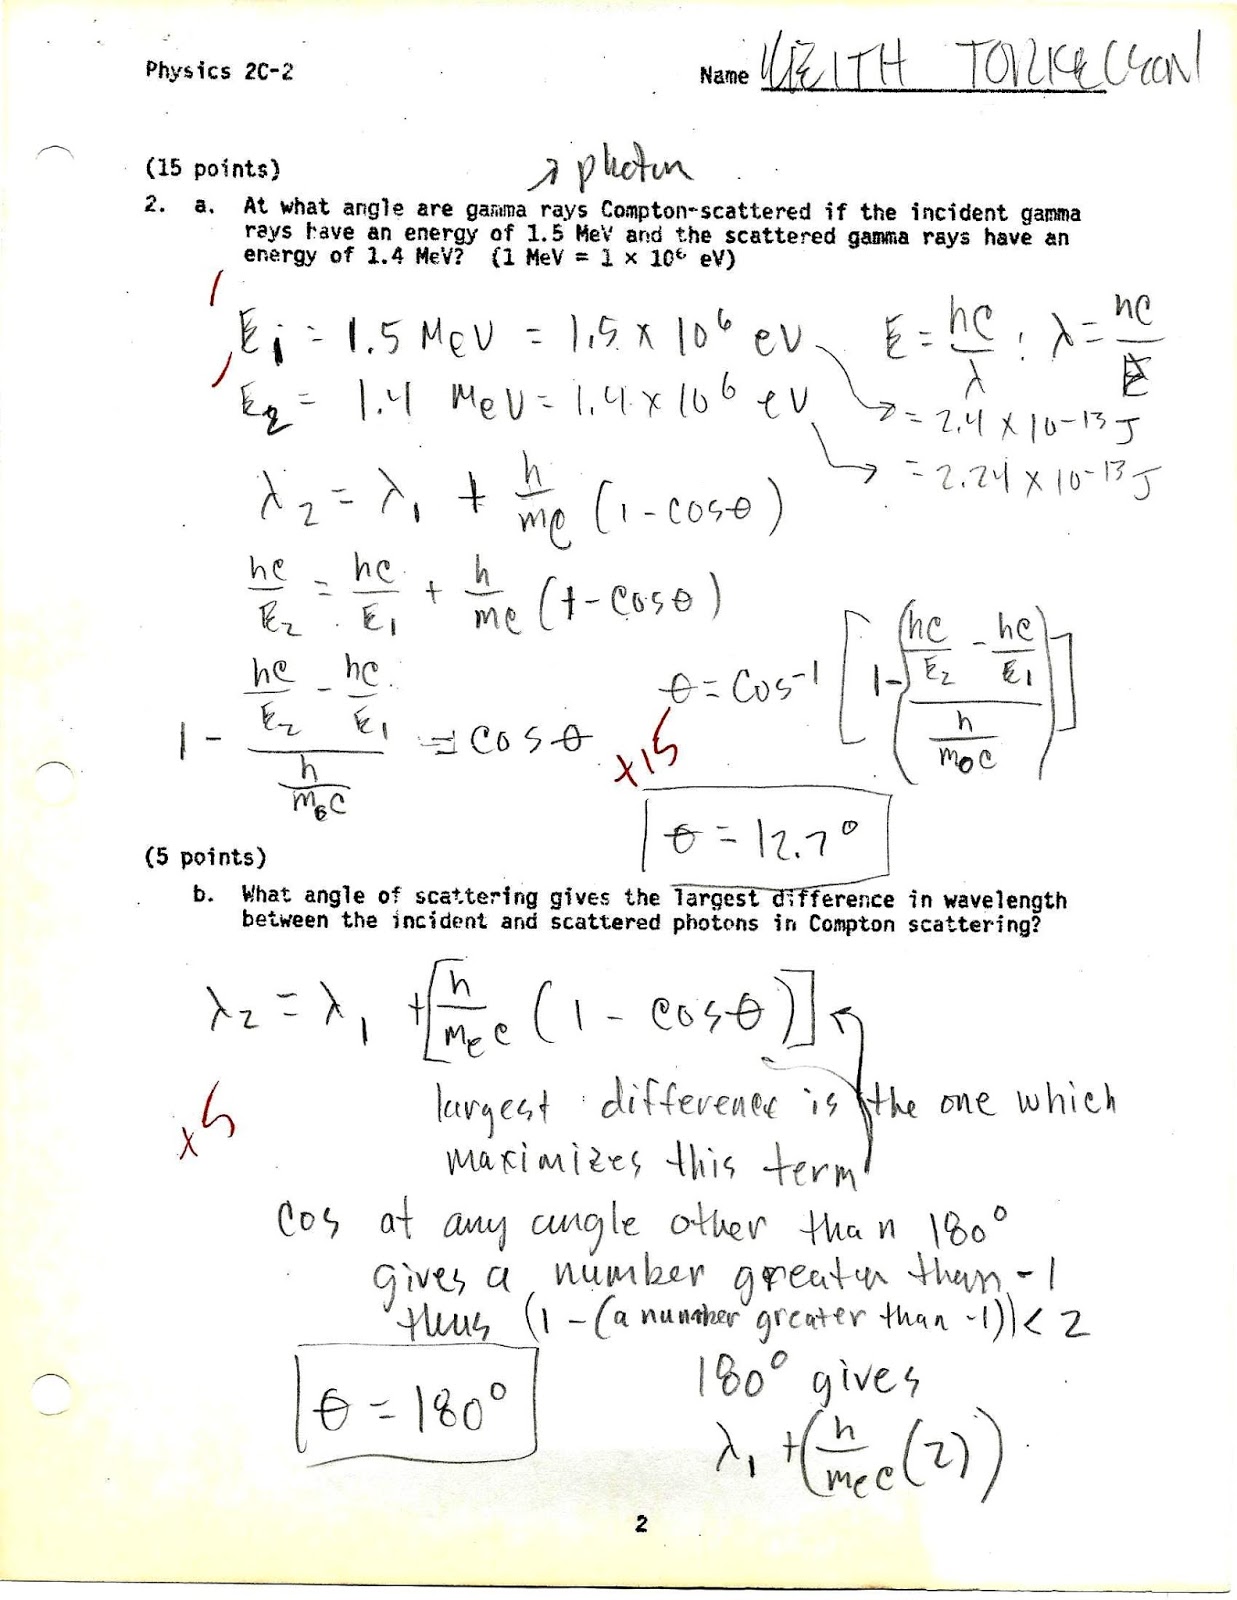 Physics 2C-2
Name KEITH TORKELSON
(15 points)
→ photon
2. a. At what angle are gamma rays Compton-scattered if the incident gamma
rays have an energy of 1.5 MeV and the scattered gamma rays have an
energy of 1.4 MeV? (1 MeV = 1 × 10⁶ eV)
E₁ = 1.5 MeV = 1.5 × 10⁶ eV
E = hc/λ : λ = hc/E
E₂ = 1.4 MeV = 1.4 × 10⁶ eV
→ = 2.4 × 10⁻¹³ J
→ = 2.24 × 10⁻¹³ J
λ₂ = λ₁ + h/mc (1 - cosθ)
hc/E₂ = hc/E₁ + h/mc (1 - cosθ)
1 - (hc/E₂ - hc/E₁)/(h/m₀c) = cosθ
θ = cos⁻¹ [1 - ((hc/E₂ - hc/E₁)/(h/m₀c))]
+15
θ = 12.7°
(5 points)
b. What angle of scattering gives the largest difference in wavelength
between the incident and scattered photons in Compton scattering?
λ₂ = λ₁ + [h/mₑc (1 - cosθ)]
+5
largest difference is the one which
maximizes this term
cos at any angle other than 180°
gives a number greater than -1
thus (1 - (a number greater than -1)) < 2
θ = 180°
180° gives
λ₁ + (h/mₑc (2))
2